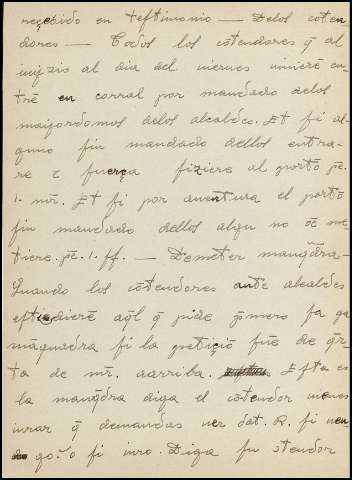 reçebido en teſtimonio — Delos cōten
dores — Todos los cōtendores q̄ al
iuyzio al dia del viernes vinierē en-
trē en corral por mandado delos
maiordomos delos alcaldes. Et ſi al-
guno ſin mandado dellos entra-
re τ fuerça fiziere al portō pc̄.
1. mr̄. Et ſi por auentura el portō
ſin mandado dellos algu no ōe me
tiere. pc̄. 1. ff. — Demeter manq̄dra-
Quando los cōtendores ante alcaldes
eſtudierē aq̄l q̄ pide p̄mero fa ga
māquadra ſi la petiçiō fuē de q̄r-
ta de mr̄. aarriba. Eſta es
la manq̄dra diga el cōtendor
iurar q̄ demandas uer dat. R. ſi
go. o ſi iuro. Diga ſu ctendor